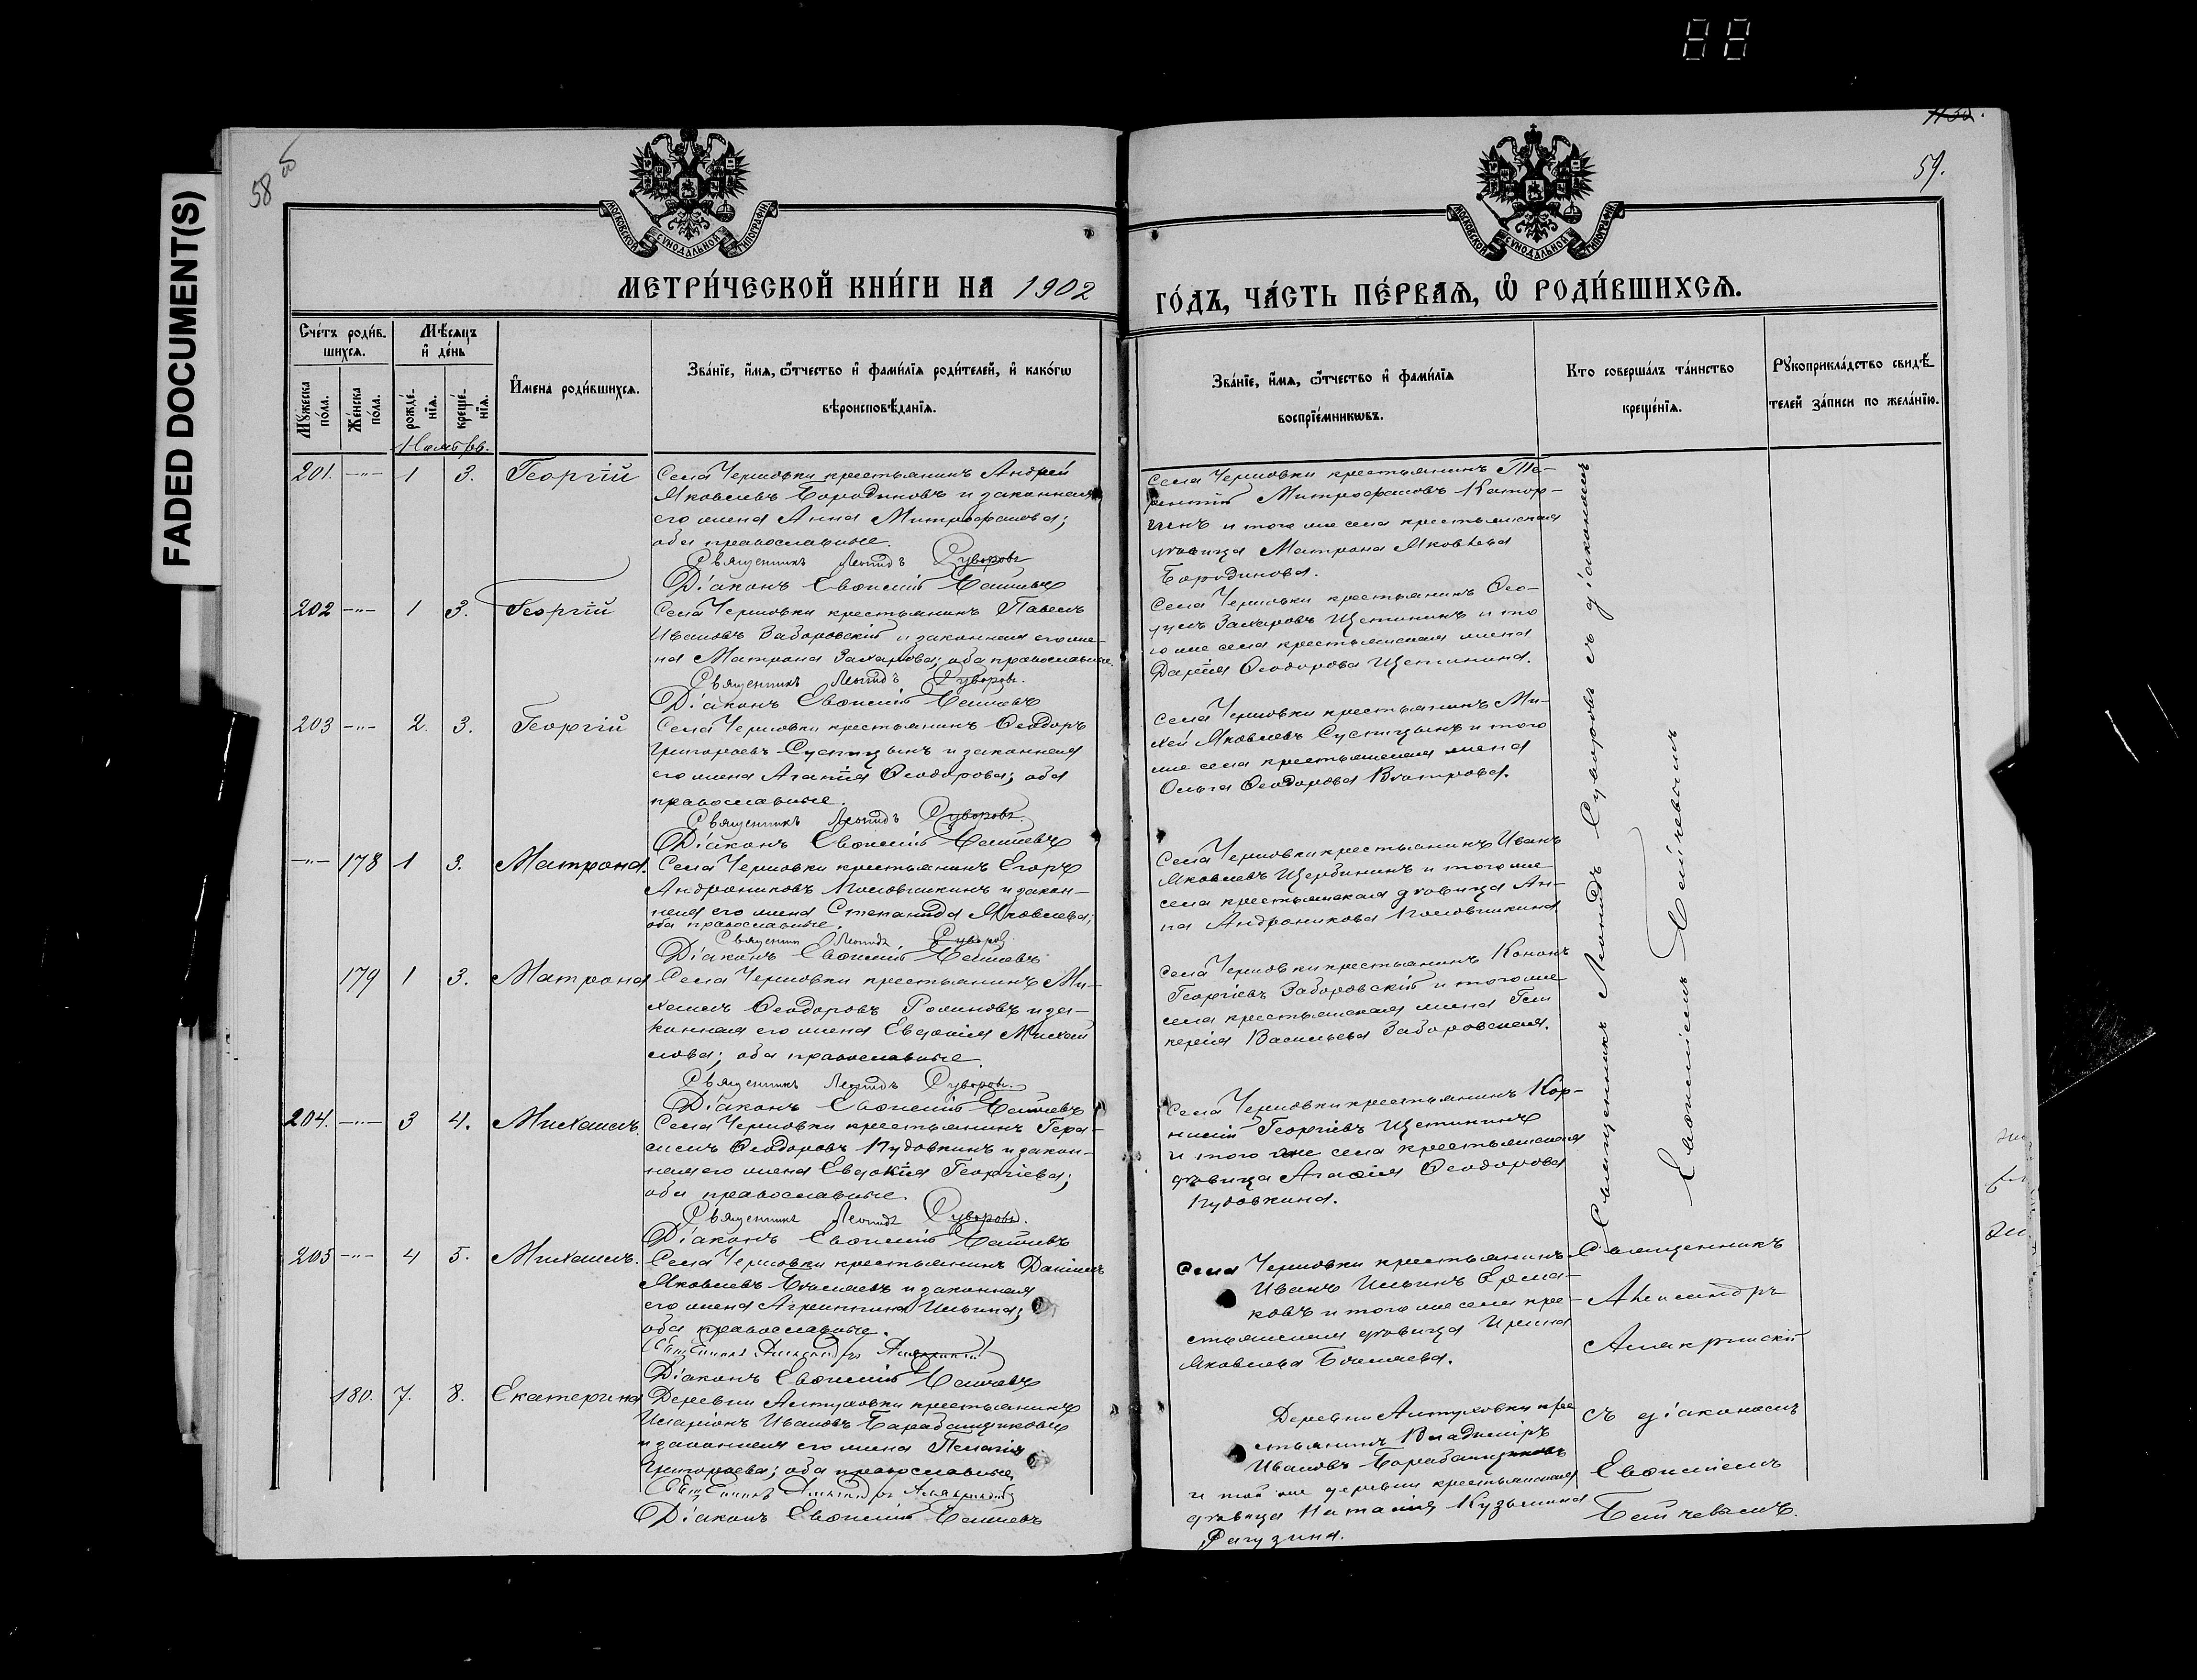 FADED DOCUMENT(S)
88
58 об
59.
МОСКОВСКОЙ СѴНОДАЛЬНОЙ ТИПОГРАФІИ
МОСКОВСКОЙ СѴНОДАЛЬНОЙ ТИПОГРАФІИ
МЕТРИ́ЧЕСКОЙ КНИ́ГИ НА 1902
ГО́ДЪ, ЧА́СТЬ ПЕ́РВАѦ, Ѡ РОДИ́ВШИХСѦ.
Сче́тъ роди́в-
шихсѧ.
Мѣсѧцъ
и де́нь
Мꙋжеска по́ла.
Же́нска по́ла.
рожде́-
нїѧ.
креще́-
нїѧ.
Имена роди́вшихсѧ.
Зва́нїе, и́мѧ, ѻ́тчество и фами́лїѧ роди́телей, и како́гѡ
вѣроисповѣ́данїѧ.
Зва́нїе, и́мѧ, ѻ́тчество и фами́лїѧ
воспрїе́мникѡвъ.
Кто соверша́лъ та́инство
креще́нїѧ.
Рꙋкоприкла́дство свидѣ́-
телей за́писи по жела́нїю.
Ноябрь.
201. -"- 1 3. Георгій
Села Черновки крестьянинъ Андрей
Яковлевъ Бородиновъ и законная
его жена Анна Митрофанова;
оба православные.
Священникъ Леонидъ Суворовъ
Діаконъ Евѳимій
Села Черновки крестьянинъ Те-
рентій Митрофановъ
и того же села крестьянская
дѣвица Матрона Яковлева
Бородинова.
202 -"- 1 3. Георгій
Села Черновки крестьянинъ Павелъ
Ивановъ Заборовскій и законная его же-
на Матрона Захарова; оба православные.
Священникъ Леонидъ Суворовъ.
Діаконъ Евѳимій
Села Черновки крестьянинъ Ѳео-
Захаровъ Щетининъ и то-
го же села крестьянская жена
Дарія Ѳеодорова Щетинина.
203 -"- 2. 3. Георгій
Села Черновки крестьянинъ Ѳеодоръ
Григорьевъ Суспицынъ и законная
его жена Агапія Ѳеодорова; оба
православные.
Священникъ Леонидъ Суворовъ.
Діаконъ Евѳимій
Села Черновки крестьянинъ Ми-
хей Яковлевъ Суспицынъ и того
же села крестьянская жена
Ольга Ѳеодорова
-"- 178 1 3. Матрона.
Села Черновки крестьянинъ Егоръ
Андрониковъ и закон-
ная его жена Степанида Яковлева;
оба православные.
Священникъ Леонидъ Суворовъ
Діаконъ Евѳимій
Села Черновки крестьянинъ Иванъ
Яковлевъ Щербининъ и того же
села крестьянская дѣвица Ан-
на Андроникова
179 1 3. Матрона
Села Черновки крестьянинъ Ми-
хаилъ Ѳеодоровъ и за-
конная его жена Евдокія Михай
лова; оба православные.
Священникъ Леонидъ Суворовъ.
Діаконъ Евѳимій
Села Черновки крестьянинъ Кононъ
Георгіевъ Заборовскій и того же
села крестьянская жена Гли
керія Васильева Заборовская.
204. -"- 3 4. Михаилъ.
Села Черновки крестьянинъ Гера-
симъ Ѳеодоровъ Пудовкинъ и закон-
ная его жена Евдокія Георгіева;
оба православные.
Священникъ Леонидъ Суворовъ.
Діаконъ Евѳимій
Села Черновки крестьянинъ Кор-
нилій Георгіевъ Щетининъ
и того же села крестьянская
дѣвица Агаѳія Ѳеодорова
Пудовкина.
Священникъ Леонидъ Суворовъ съ діакономъ
Евѳиміемъ
205 -"- 4 5. Михаилъ.
Села Черновки крестьянинъ Даніилъ
Яковлевъ и законная
его жена Агриппина Ильина;
оба православные.
Діаконъ Евѳимій
Села Черновки крестьянинъ
Иванъ Ильинъ Ерма-
ковъ и того же села кре-
стьянская дѣвица Ирина
Яковлева
Священникъ
Александръ
180. 7. 8. Екатерина
Деревни Алтуховки крестьянинъ
Иларіонъ Ивановъ Барабанщиковъ
и законная его жена Пелагія
Григорьева; оба православные
Діаконъ Евѳимій
Деревни Алтуховки кре
стьянинъ Владиміръ
Ивановъ Барабанщиковъ
и той же деревни крестьянская
дѣвица Наталія Кузьмина
Рагузина.
съ діакономъ
Евѳиміемъ